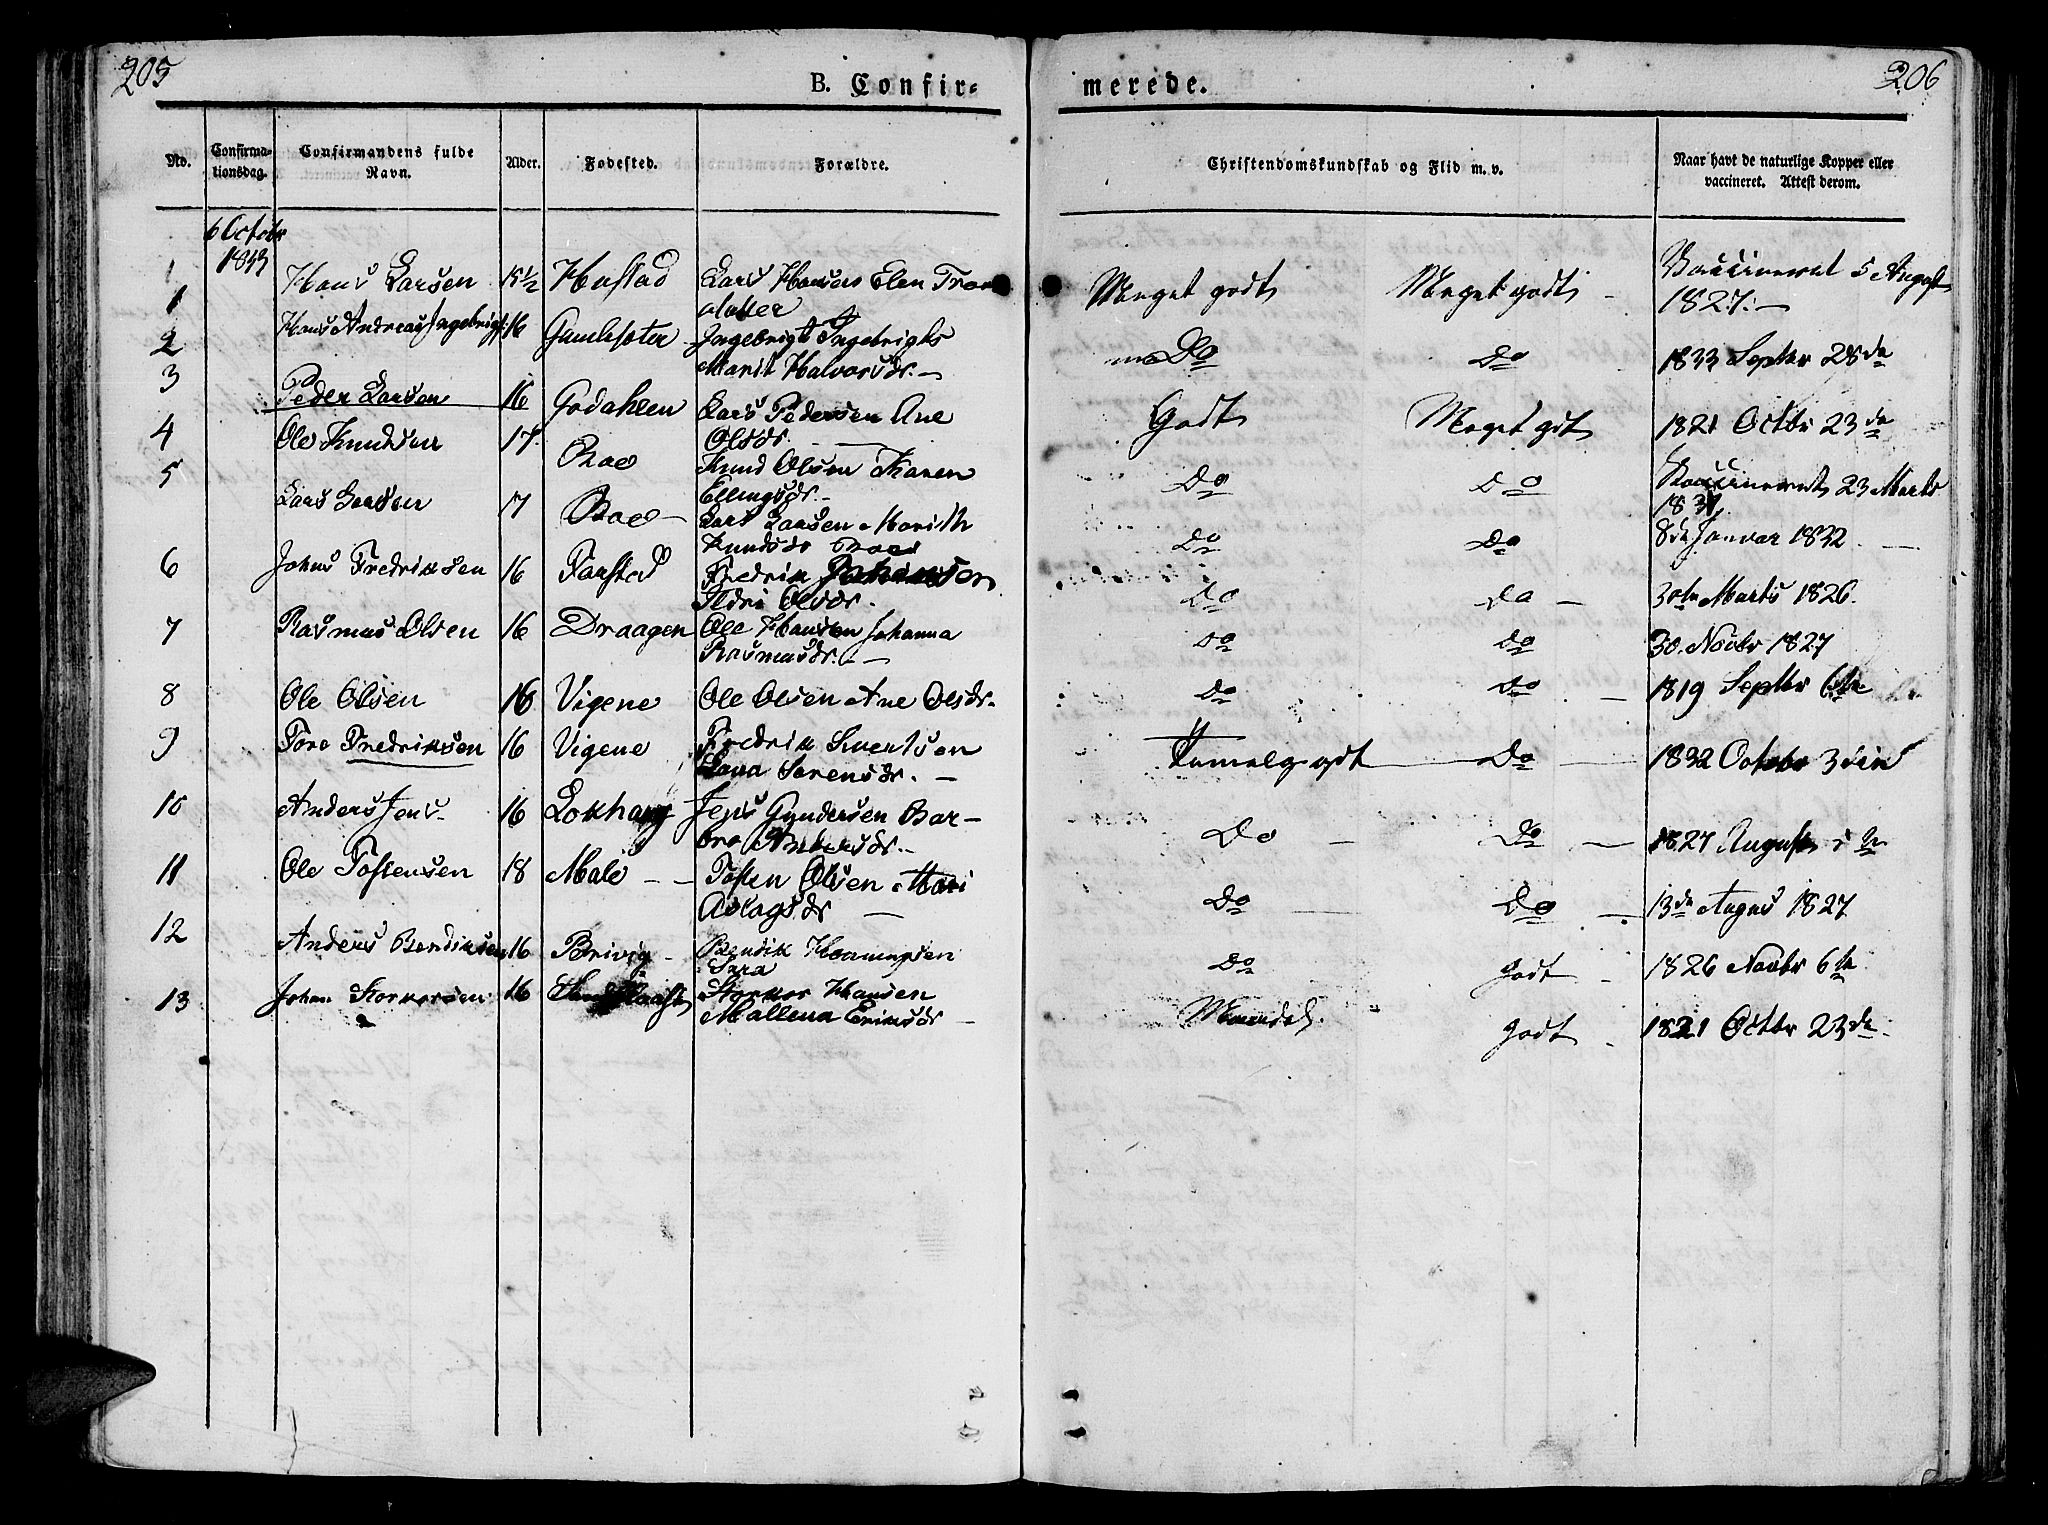 205
B. Confir-
merede.
206
No.
Confirma-
tionsdag.
Confirmandens fulde
Navn.
Alder.
Fødested.
Forældre.
Christendomskundskab og Flid m.v.
Naar havt de naturlige Kopper eller
vaccineret. Attest derom.
6 Octobr
1833
1 Hans Larsen 15½ Hustad Lars Hansen Elen Meget godt Meget godt Vaccineret 5 August
1827.
1
2 Hans Andreas Ingebrigts 16 Ingebrigt Ingebrigts
Marit Halvorsdr. Do Do 1833 Septbr 28de
3 Peder Larsen 16 Godahlen Lars Pedersen Ane
Olsdr. Godt Meget gdt 1821 Octbr 23de
4 Ole Knudsen 17 Boe Knud Olsen Karen
Ellingsdr. Do Do Vaccineret 23 Marts
5 Lars Larsen 17 Boe Lars Larsen Marith
Knudsdr Do Do 8de Januar 1832
6 Johns Fredriksen 16 Farstad Fredrik Johansen
Ildri Olsdr. Do Do 30te Marts 1826.
7 Rasmus Olsen 16 Draagen Ole Hansen Johanna
Rasmusdr. Do Do 30. Novbr 1827
8 Ole Olsen 16 Vigene Ole Olsen Ane Olsdr. Do Do 1819 Septbr 6te
9 Tore Fredriksen 16 Vigene Fredrik
Sørensdr. Temelg godt Do 1832 October 3die
10 Anders Jens 16 Jens Gundersen Bar-
bro Andersdr. Do Do 1827 August
11 Ole Tostensen 18 Male Tosten Olsen Mari
Aslagsdr Do Do 13de Augus 1827
12 Anders Bendiksen 16 Brivig Bendik
Sara Do Godt 1826 Novbr 6te
13 Johan Storkorsen 16 Storkor Hansen
Mallena Eriksdr Maadel. godt 1821 Octbr 23de